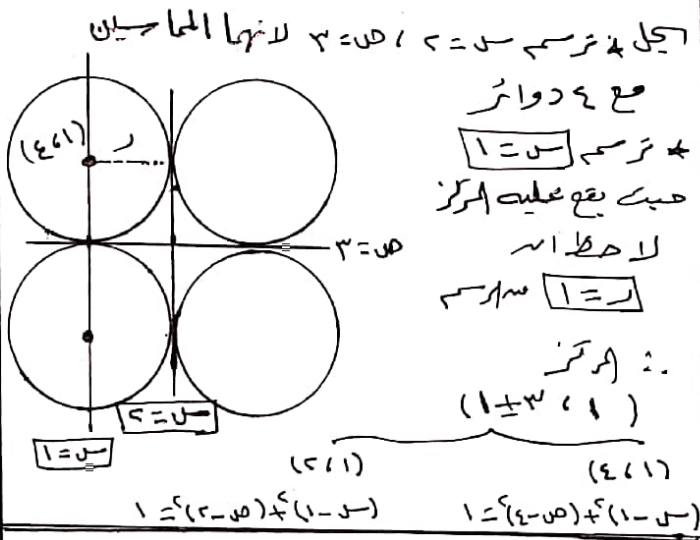 الحل * نرسم س = ٢ ، ص = ٣ لانها المماسين
مع ٤ دوائر
* نرسم س = ١
حيث يقع عليه المركز
لاحظ ان
ر = ١ من الرسم
∴ المركز
(١ ، ٣ ± ١)
(١ ، ٤)
(١ ، ٢)
(س - ١)² + (ص - ٤)² = ١
(س - ١)² + (ص - ٢)² = ١
(١ ، ٤)
ر
ص = ٣
س = ٢
س = ١